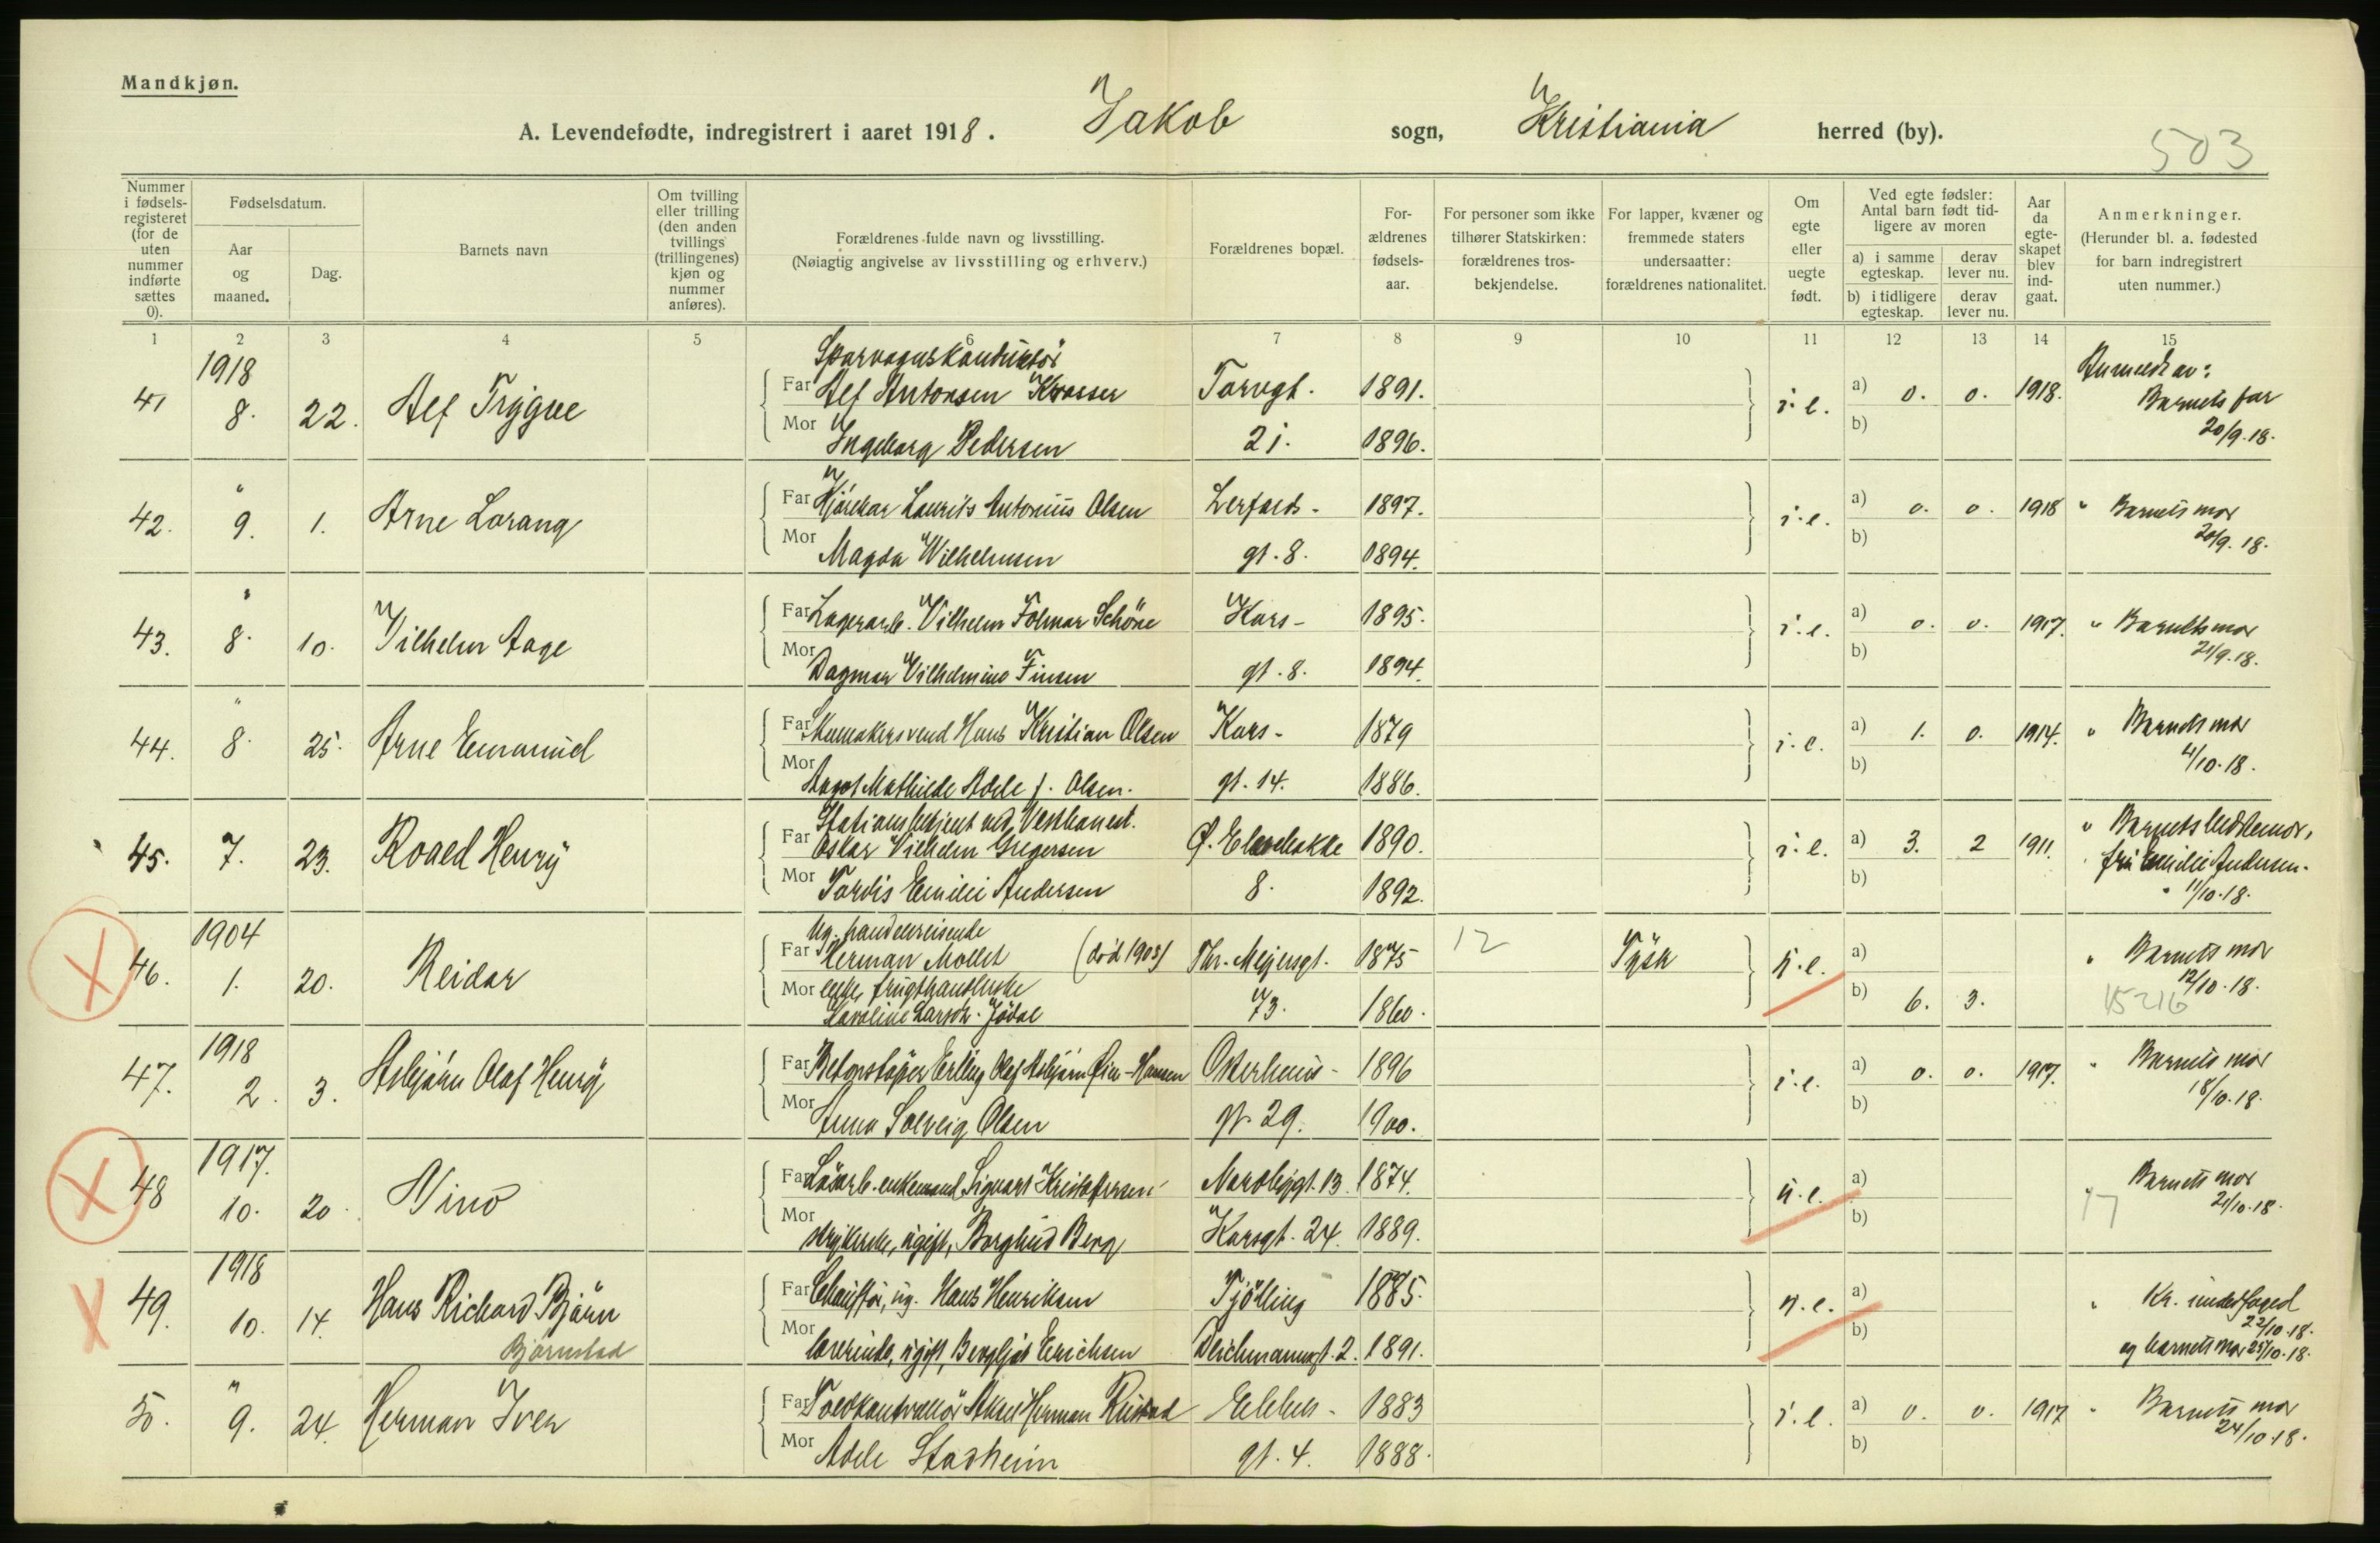 Mandkjøn.
A. Levendefødte, indregistrert i aaret 1918. Jakob sogn, Kristiania herred (by).
503
Nummer i fødsels-registeret (for de uten nummer indførte sættes 0).
Fødselsdatum.
Aar og maaned.
Dag.
Barnets navn
Om tvilling eller trilling (den anden tvillings (trillingenes) kjøn og nummer anføres).
Forældrenes fulde navn og livsstilling.
(Nøiagtig angivelse av livsstilling og erhverv.)
Forældrenes bopæl.
For-ældrenes fødsels-aar.
For personer som ikke tilhører Statskirken: forældrenes tros-bekjendelse.
For lapper, kvæner og fremmede staters undersaatter: forældrenes nationalitet.
Om egte eller uegte født.
Ved egte fødsler: Antal barn født tid-ligere av moren
a) i samme egteskap.
derav lever nu.
b) i tidligere egteskap.
derav lever nu.
Aar da egte-skapet blev ind-gaat.
Anmerkninger.
(Herunder bl. a. fødested for barn indregistrert uten nummer.)
1 2 3 4 5 6 7 8 9 10 11 12 13 14 15
1918 Sporvognskonduktør Anmeldt av:
41 8. 22. Alf Trygve Far Alf Antonsen Torvgt. 1891. i. e. a) 0. 0. 1918. Barnets far
Mor Ingeborg Pedersen 21. 1896. b) 20/9.18.
42. " 9. 1. Arne Lorang Far Laurits Antonius Olsen 1897. i. e. a) 0. 0. 1918 " Barnets mor
Mor Magda Wilhelmsen gt. 8. 1894. b) 20/9.18.
43. " 8. 10. Vilhelm Aage Far Lagerarb. Vilhelm Folmar Schöne Kors- 1895. i. e. a) 0. 0. 1917. " Barnets mor
Mor Dagmar Vilhelmine Finsen gt. 8. 1894. b) 21/9.18.
44. " 8. 25. Arne Emanuel Far Skomakersvend Hans Kristian Olsen Kors- 1879 i. e. a) 1. 0. 1914. " Barnets mor
Mor Aagot Mathilde Adele f. Olsen. gt. 14. 1886. b) 4/10.18.
Stationsbetjent ved Vestbanest. " Barnets bedstemor,
45. 7. 23. Roald Henry Far Oskar Vilhelm Gregersen Ø. Elvebakke 1890. i. e. a) 3. 2 1911. fru Emilie Andersen.
Mor Tordis Emilie Andersen 8. 1892. b) 11/10.18.
1904 Ug. handelsreisende
46. 1. 20. Reidar Far Herman Mollet (død 1905) Thv. Meyersgt. 1875 12 Tysk u. e. a) " Barnets mor
Mor enke, frugthandlerske 12/10.18.
Karoline Larsdtr. Jødal 73. 1860. b) 6. 3. 15216
1918
47. 2. 3. Asbjørn Olaf Henry Far Betonstøper Erling Olaf Asbjørn Hansen Osterhaus- 1896 i. e. a) 0. 0. 1917. " Barnets mor
Mor Anna Solveig Olsen gt. 29. 1900. b) 18/10.18.
1917.
48 10. 20. Far enkemand Sigvart Kristoffersen Nordbygt. 13. 1874. u. e. a) Barnets mor
Mor strykerske, ugift, Borghild Berg Korsgt. 24. 1889. b) 17 21/10.18.
1918
49. 10. 14. Hans Richard Bjørn Far Chauffør, ug. Hans Henriksen Tjølling 1885. u. e. a) "
Bjørnstad Mor lærerinde, ugift, Bergljot Erichsen Deichmannsgt. 2. 1891. b) 22/10.18.
og barnets mor 25/10.18.
50. " 9. 24. Herman Iver Far Toldkontrollør Herman Ebbels- 1883 i. e. a) 0. 0. 1917 " Barnets mor
Mor Adele Stadheim gt. 4. 1888. b) 24/10.18.